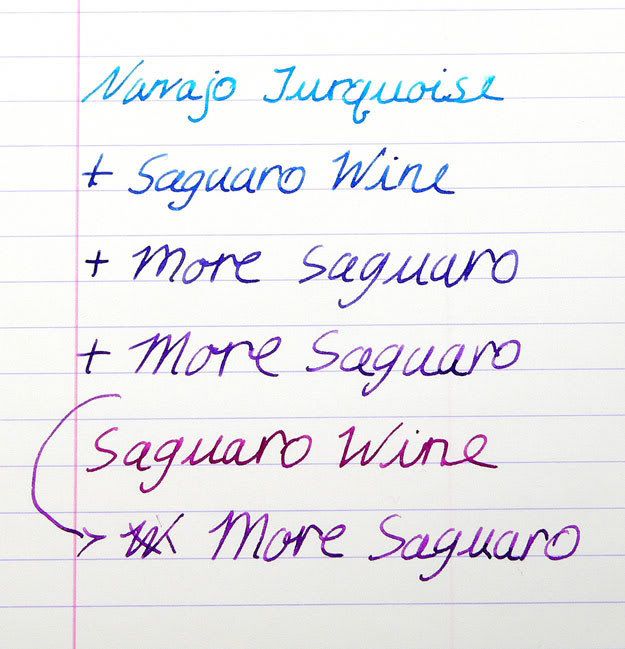 Navajo Turquoise
+ Saguaro Wine
+ More Saguaro
+ More Saguaro
Saguaro Wine
More Saguaro